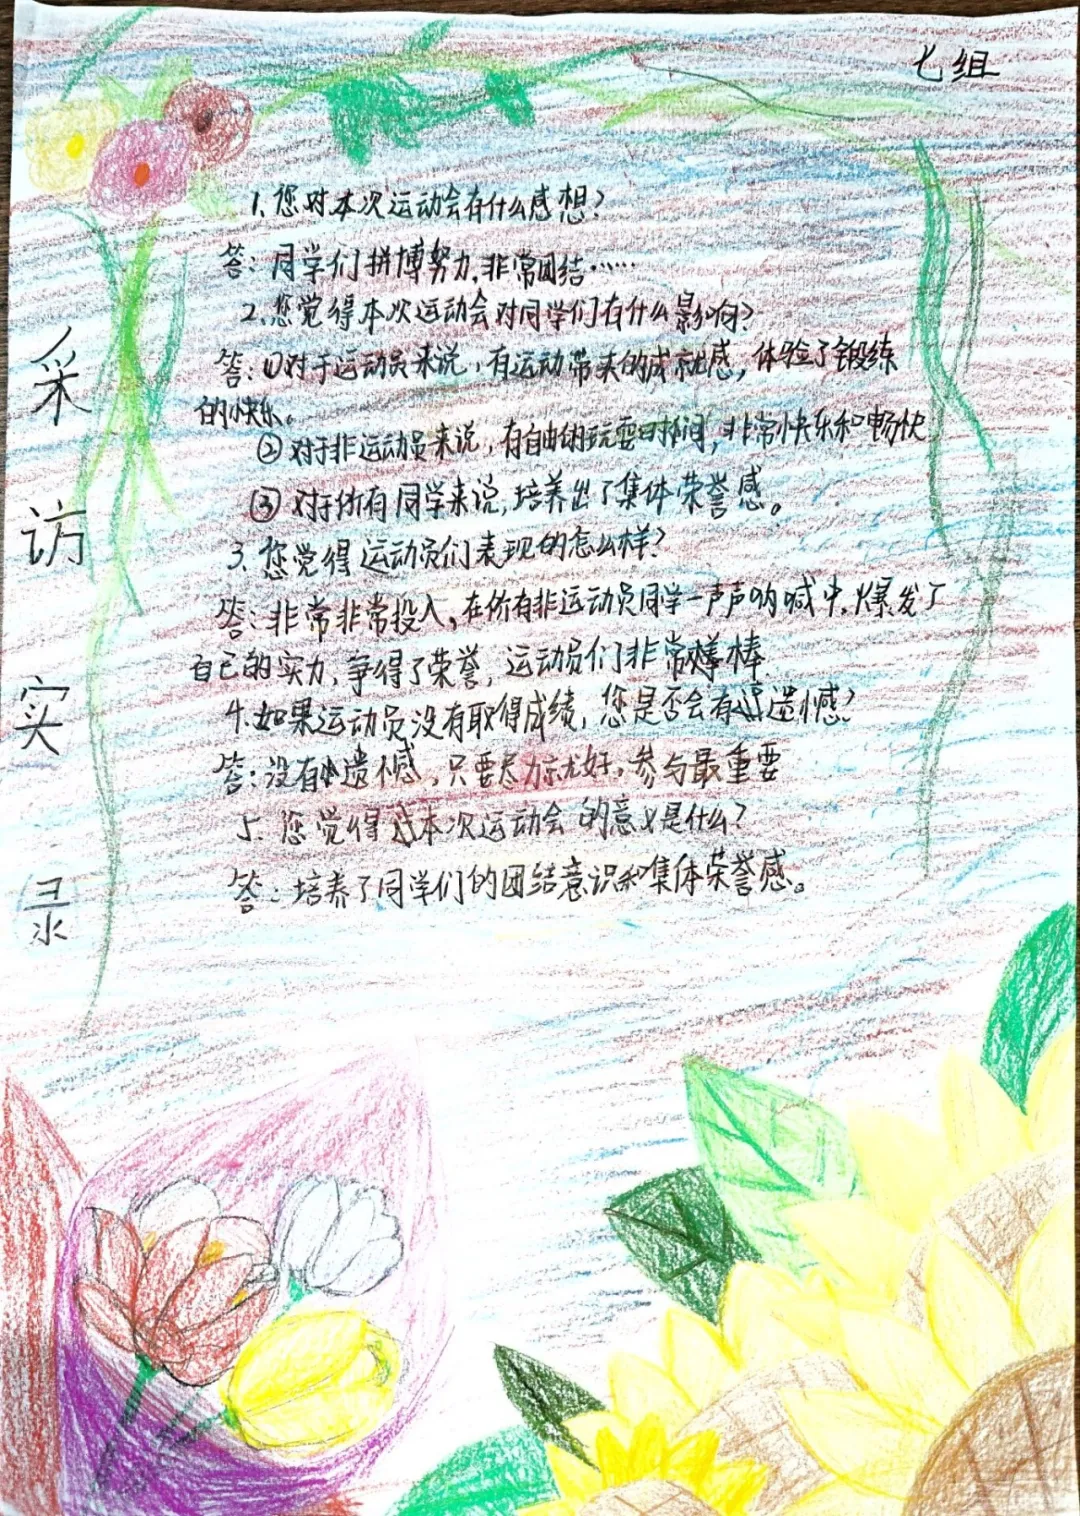 七组
采访实录
1、您对本次运动会有什么感想？
答：同学们拼搏努力，非常团结……
2、您觉得本次运动会对同学们有什么影响？
答：①对于运动员来说，有运动带来的成就感，体验了锻练
的快乐。
②对于非运动员来说，有自由的玩耍时间，非常快乐和畅快
③对于所有同学来说，培养出了集体荣誉感。
3、您觉得运动员们表现的怎么样？
答：非常非常投入，在所有非运动员同学一声声呐喊中，爆发了
自己的实力，争得了荣誉，运动员们非常棒棒
4、如果运动员没有取得成绩，您是否会有遗憾？
答：没有遗憾，只要尽力就好，参与最重要
5、您觉得本次运动会的意义是什么？
答：培养了同学们的团结意识和集体荣誉感。